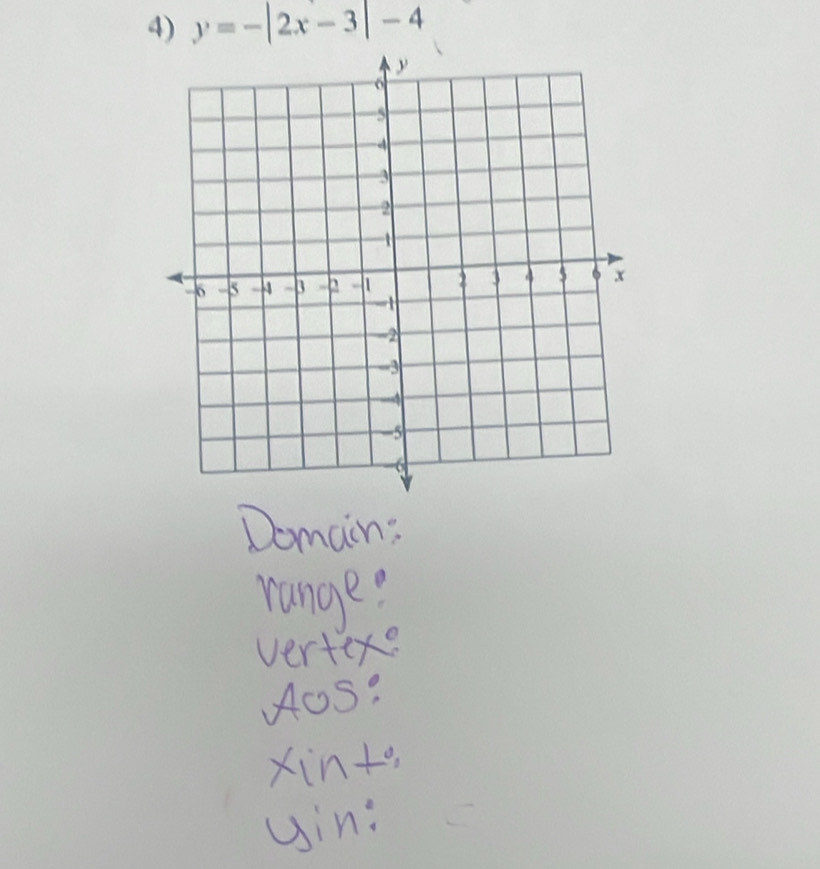 4) y = -|2x - 3| - 4
y
6
5
4
3
2
1
-6 -5 -4 -3 -2 -1 2 3 4 5 6 x
-1
-2
-3
-4
-5
-6
Domain:
range:
vertex:
AOS:
xint:
yin: